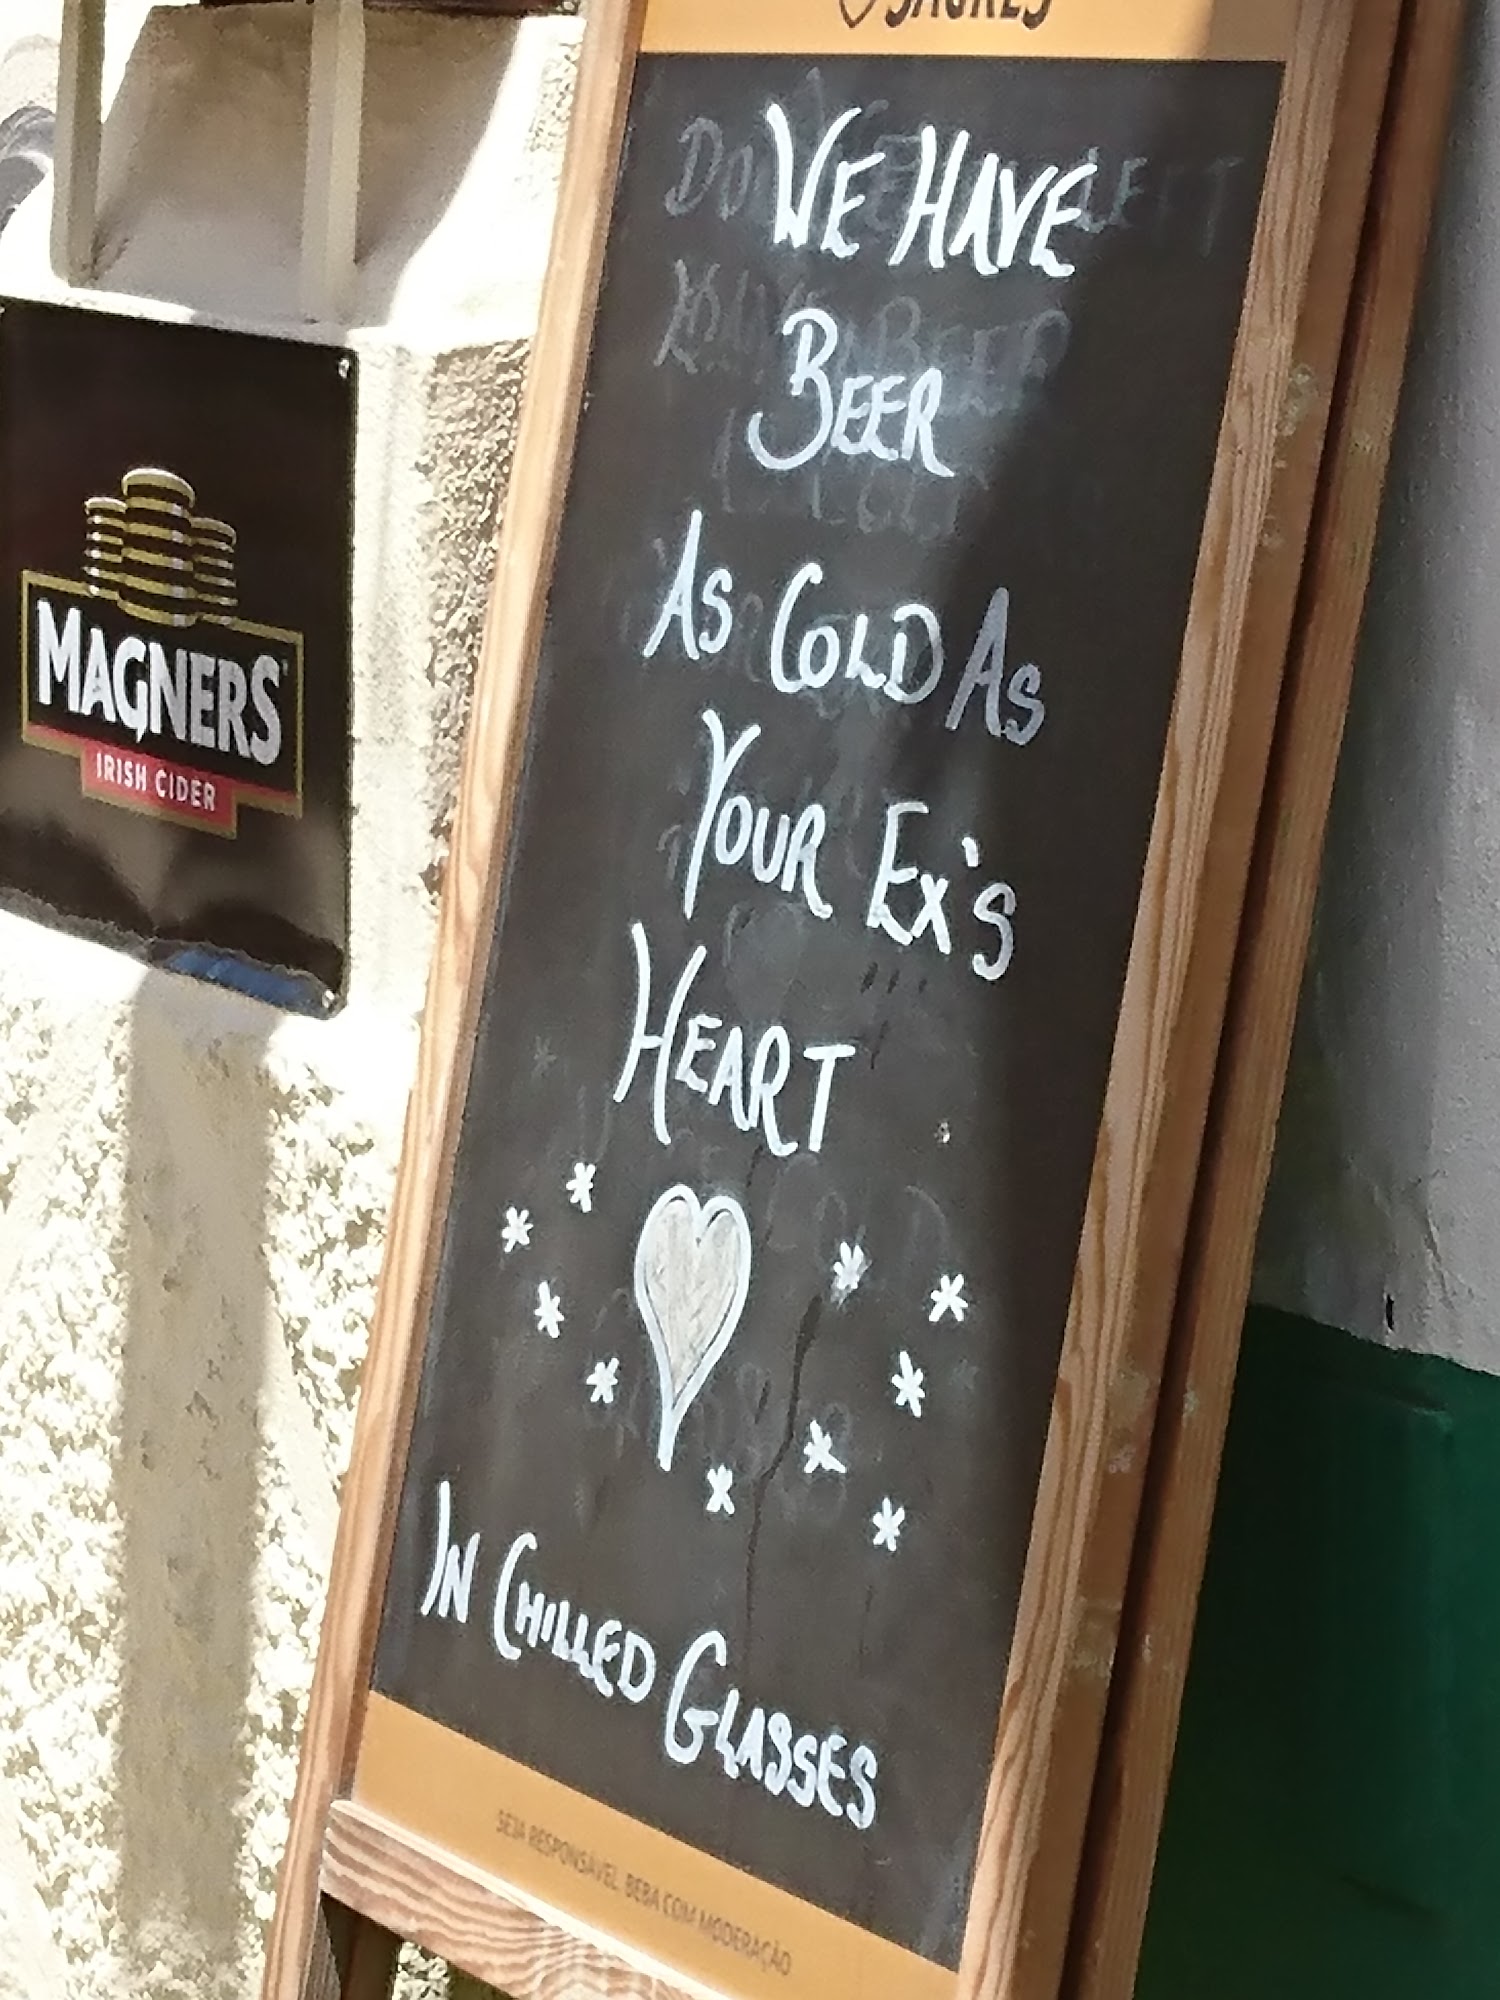 SAGRES
WE HAVE
BEER
AS COLD AS
YOUR EX'S
HEART
IN CHILLED GLASSES
SEJA RESPONSÁVEL. BEBA COM MODERAÇÃO
MAGNERS
IRISH CIDER